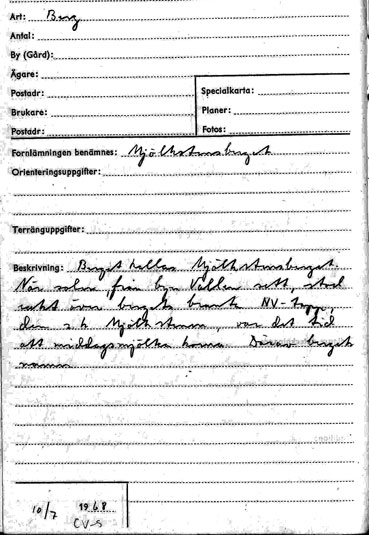 Art: Berg
Antal:
By (Gård):
Ägare:
Postadr:
Specialkarta:
Brukare:
Planer:
Postadr:
Fotos:
Fornlämningen benämnes: Mjölkstensberget
Orienteringsuppgifter:
Terränguppgifter:
Beskrivning: Berget kallas Mjölkstensberget.
När solen, från byn Vallen sett, stod
rakt över bergets branta NV-topp,
den s.k. Mjölkstenen, var det tid
att middagsmjölka korna. Därav bergets
namn
10/7 1968
CV-S